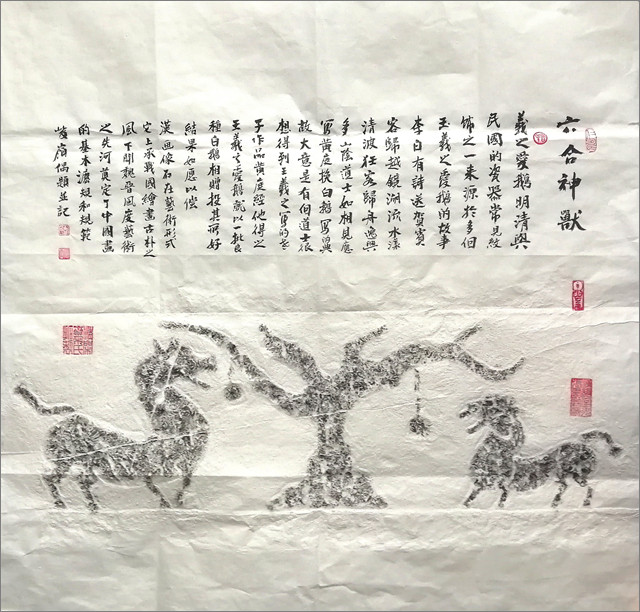 六合神獸
羲之愛鵝明清與
民國的瓷器常見紋
飾之一來源於多個
王羲之愛鵝的故事
李白有詩送賀賓
客歸越鏡湖流水漾
清波狂客歸舟逸興
多山陰道士如相見應
寫黃庭換白鵝寫興
故大意是有個道士很
想得到王羲之寫的老
子作品黃庭經他得之
王羲之愛鵝就以一批良
種白鵝相贈投其所好
結果如愿以償
漢画像石在藝術形式
上承戰國繪畫古朴之
風下開魏晉風度藝術
之先河奠定了中國畫
的基本法規和規範
題並記